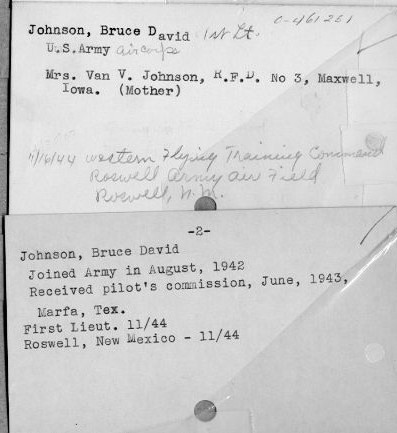 O-461251
Johnson, Bruce David 1st Lt.
U.S.Army air corps
Mrs. Van V. Johnson, R.F.D. No 3, Maxwell,
Iowa. (Mother)
11/16/44 western Flying Training Command
Roswell Army air Field
Roswell, N.M.
-2-
Johnson, Bruce David
Joined Army in August, 1942
Received pilot's commission, June, 1943,
Marfa, Tex.
First Lieut. 11/44
Roswell, New Mexico - 11/44